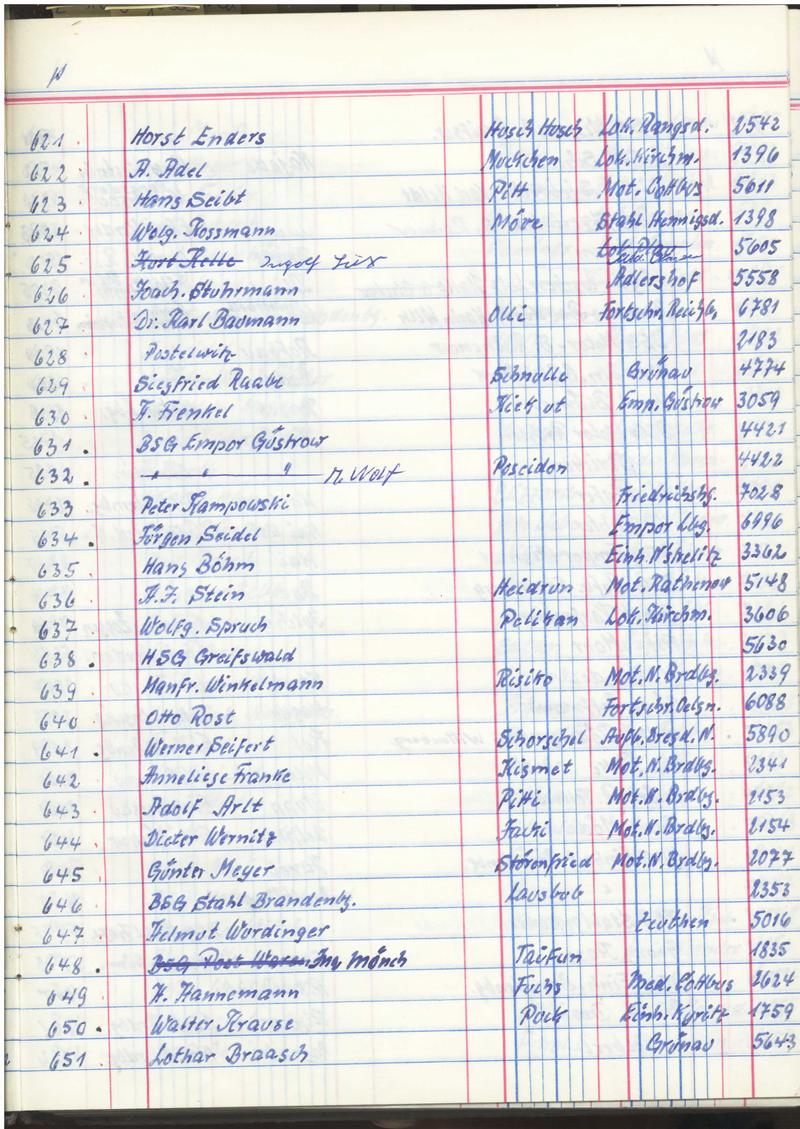 621. Horst Enders Husch Husch Lok. Rangsd. 2542
622. A. Adel Muckchen Lok. Kirchm. 1396
623. Hans Seibt Pitt Mot. Cottbus 5611
624. Wolg. Rossmann Möve Stahl Hennigsd. 1398
625. Kurt Kelle Ingolf 5605
626. Joach. Stuhrmann Adlershof 5558
627. Dr. Karl Baumann Olli Fortschr. Reichb. 6781
628. Postelwitz 2183
629. Siegfried Raabe Schnulle Grünau 4774
630. F. Frenkel Kiek ut Emp. Güstrow 3059
631. BSG Empor Güstrow 4421
632. " " " M. Wolf Poseidon 4422
633. Peter Kampowski Friedrichshg. 7028
634. Jürgen Seidel Empor Lbg. 6996
635. Hans Böhm Einh. N'strelitz 3362
636. K.F. Stein Heidrun Mot. Rathenow 5148
637. Wolfg. Spruch Pelikan Lok. Kirchm. 3606
638. HSG Greifswald 5630
639. Manfr. Winkelmann Risiko Mot. N. Brdbg. 2339
640. Otto Rost Fortschr. Oelsn. 6088
641. Werner Seifert Schorschel Aufb. Dresd. N. 5890
642. Anneliese Franke Kismet Mot. N. Brdbg. 2341
643. Adolf Arlt Pitti Mot. N. Brdbg. 2153
644. Dieter Wernitz Jacki Mot. N. Brdbg. 2154
645. Günter Meyer Störenfried Mot. N. Brdbg. 2077
646. BSG Stahl Brandenbg. Lausbub 2353
647. Helmut Wurdinger Zeuthen 5016
648. BSG Post Waren Ing. Mönch Taifun 1835
649. H. Hannemann Fuchs Med. Cottbus 2624
650. Walter Krause Puck Einh. Kyritz 1759
651. Lothar Braasch Grünau 5643